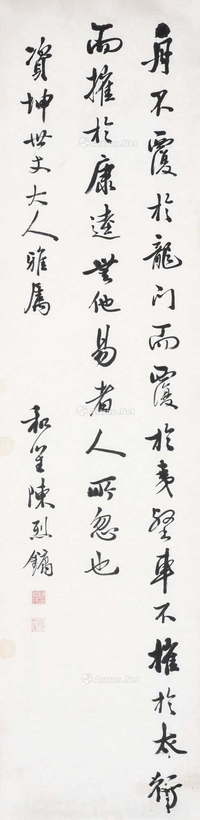 舟不覆於龍門而覆於夷壑車不摧於太
而摧於康逵無他易者人所忽也
資坤世丈大人雅屬
陳烈